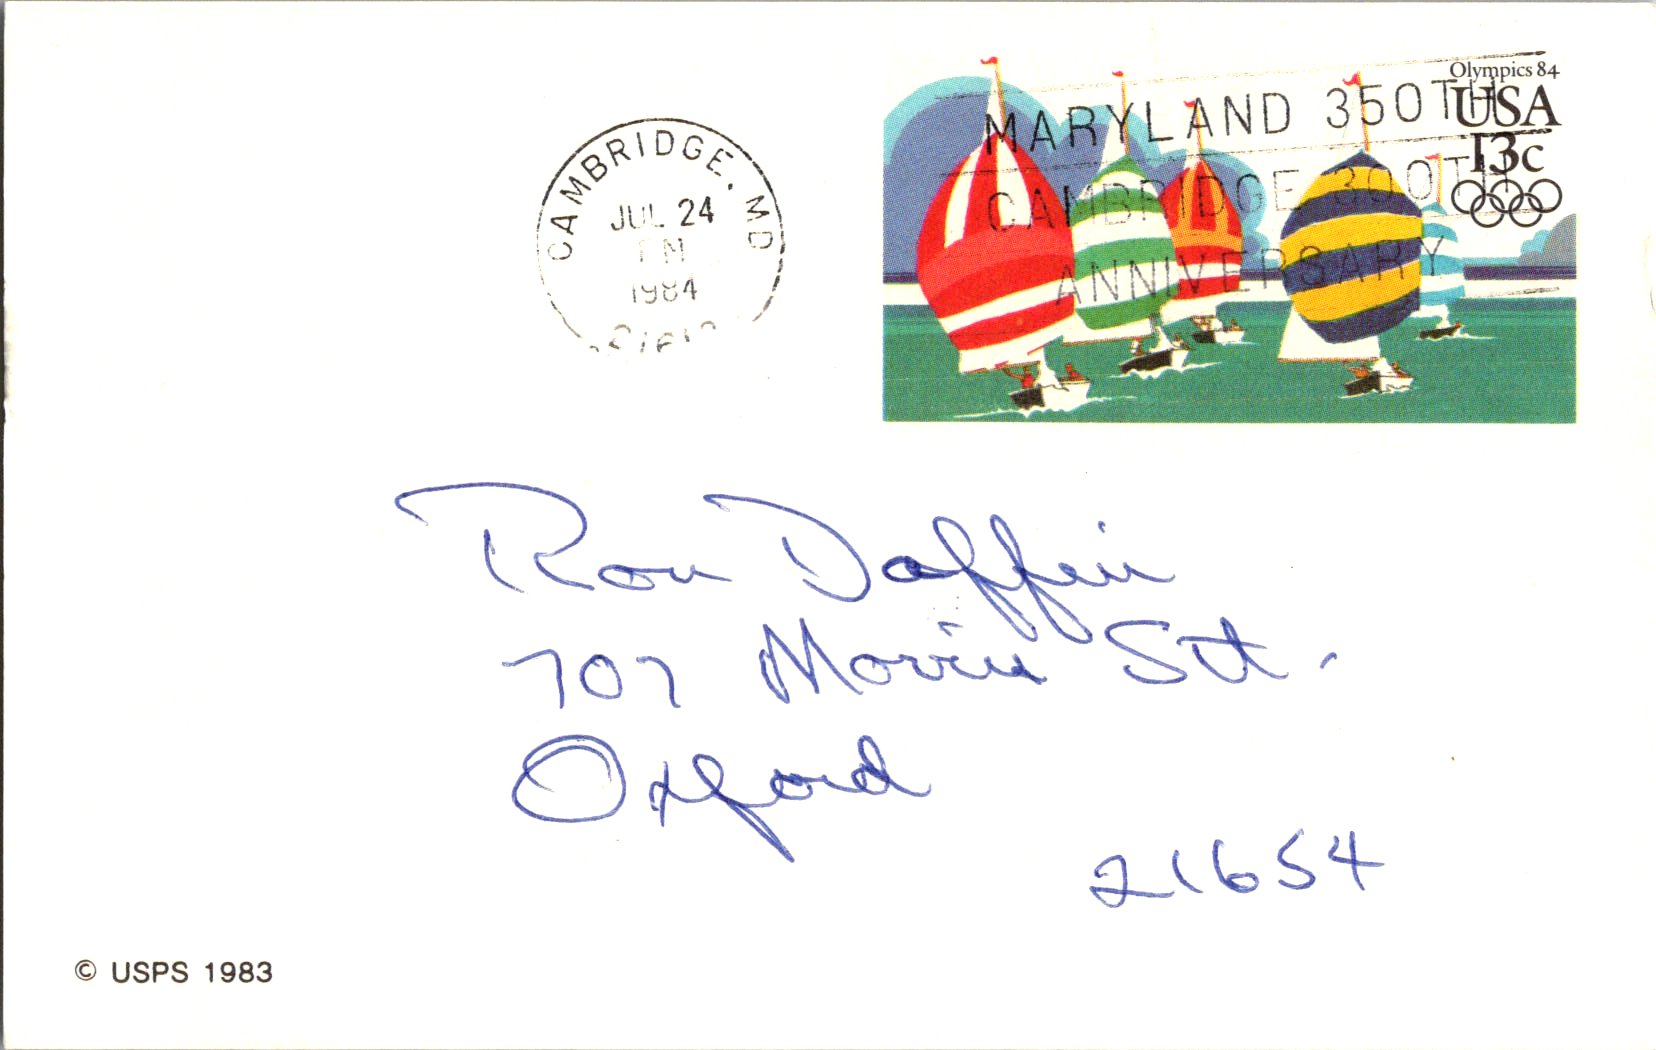 CAMBRIDGE, MD
JUL 24
PM
1984
MARYLAND 350TH
CAMBRIDGE 300TH
ANNIVERSARY
Olympics 84
USA
13c
Ron Daffin
707 Morris St.
Oxford
21654
© USPS 1983